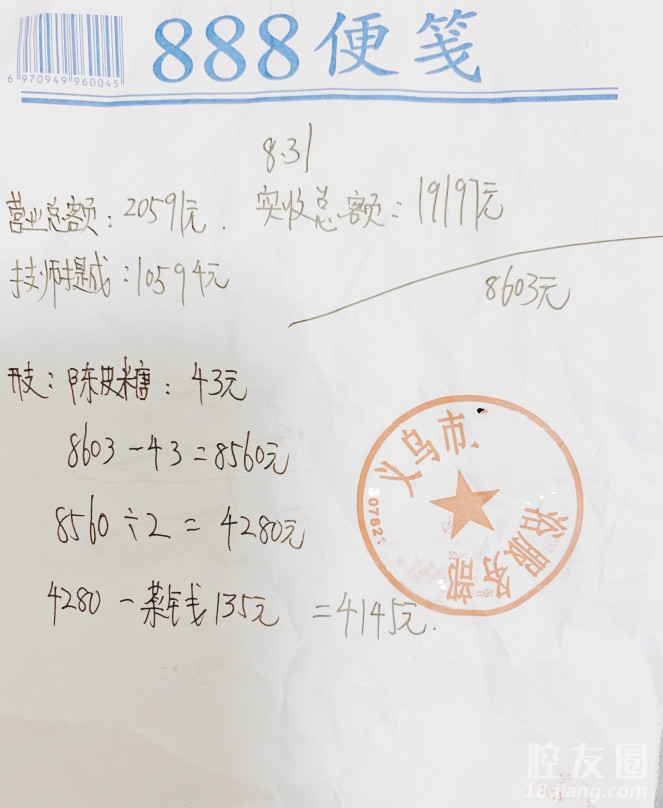 888便笺
6 970949 960045
8.31
营业总额：20591元. 实收总额：19197元
技师提成：10594元
8603元
开支：陈皮糖：43元
8603-43=8560元
8560÷2=4280元
4280-菜钱135元=4145元.
义乌市
浴服务部
30782
腔友圈
18qiang.com